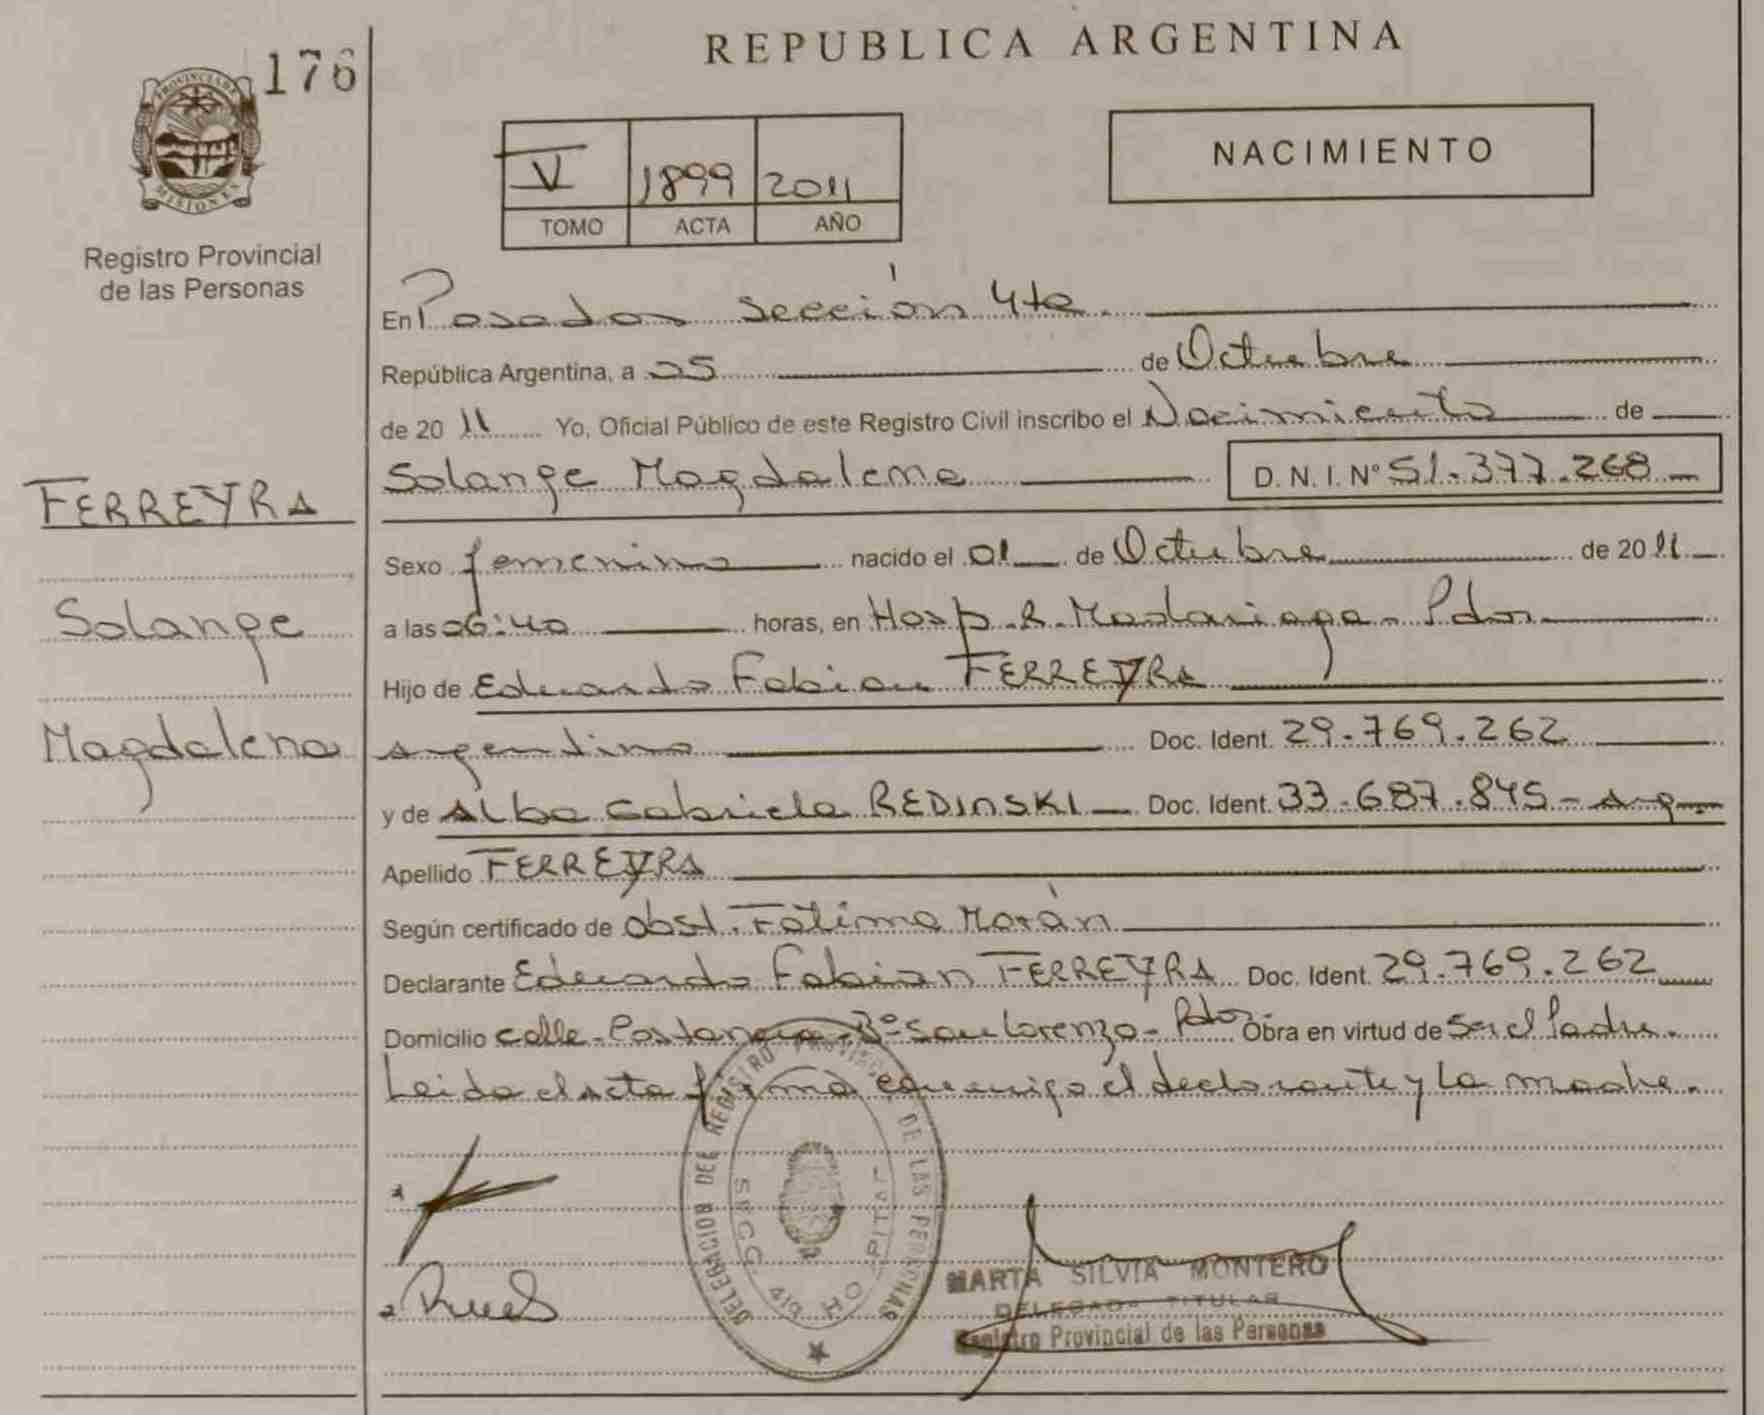 176
PROVINCIA DE
MISIONES
Registro Provincial
de las Personas
FERREYRA
Solange
Magdalena
REPUBLICA ARGENTINA
V 1899 2011
TOMO ACTA AÑO
NACIMIENTO
En Posadas Sección 4ta
República Argentina, a 25 de Octubre
de 20 11 Yo, Oficial Público de este Registro Civil inscribo el Nacimiento de
Solange Magdalena D. N. I. Nº 51.377.268
Sexo femenino nacido el 01 de Octubre de 20 11
a las 06:40 horas, en Hosp. R. Madariaga - Pdas
Hijo de Eduardo Fabian FERREYRA
argentino Doc. Ident. 29.769.262
y de Alba Gabriela REDINSKI Doc. Ident. 33.687.845 - arg
Apellido FERREYRA
Según certificado de obst. Fátima Morán
Declarante Eduardo Fabian FERREYRA Doc. Ident. 29.769.262
Domicilio calle - Bº San Lorenzo - Pdas Obra en virtud de Ser el Padre.
Leida el acta firma conmigo el declarante y la madre.
DELEGACION DEL REGISTRO PROVINCIAL DE LAS PERSONAS
SECC. 4ta HOSPITAL
MARTA SILVIA MONTERO
DELEGADA TITULAR
Registro Provincial de las Personas